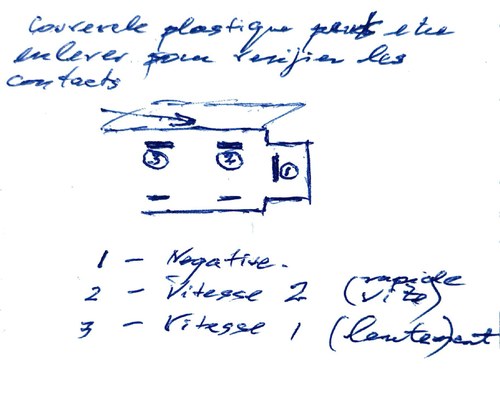 Couvercle plastique peut etre
enlever pour verifier les
contacts
3 2 1
1 - Negative.
2 - Vitesse 2 (rapide
vite)
3 - Vitesse 1 (lentement)